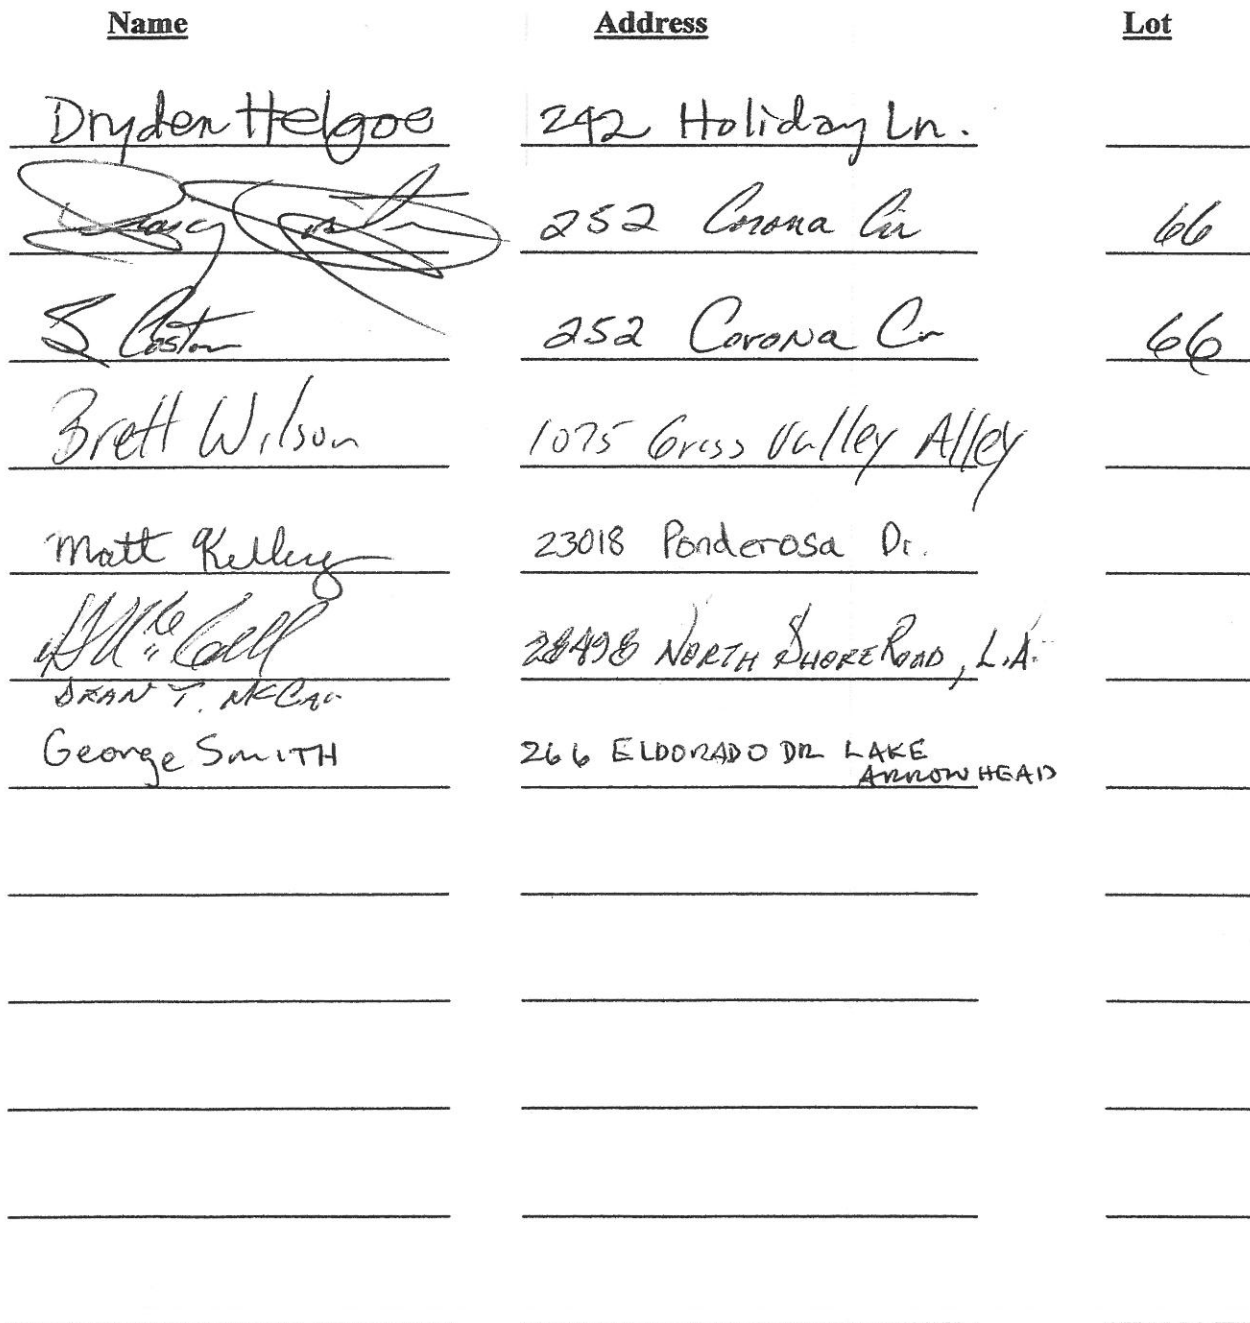 Name Address Lot
Dryden Helgoe 242 Holiday Ln.
252 Corona Cir 66
S Coston 252 Corona Cir 66
Brett Wilson 1075 Grass Valley Alley
Matt Kelley 23018 Ponderosa Dr.
McCall 28498 NORTH SHORE ROAD, L.A.
DEAN T. McCall
George SMITH 266 ELDORADO DR LAKE
ARROWHEAD